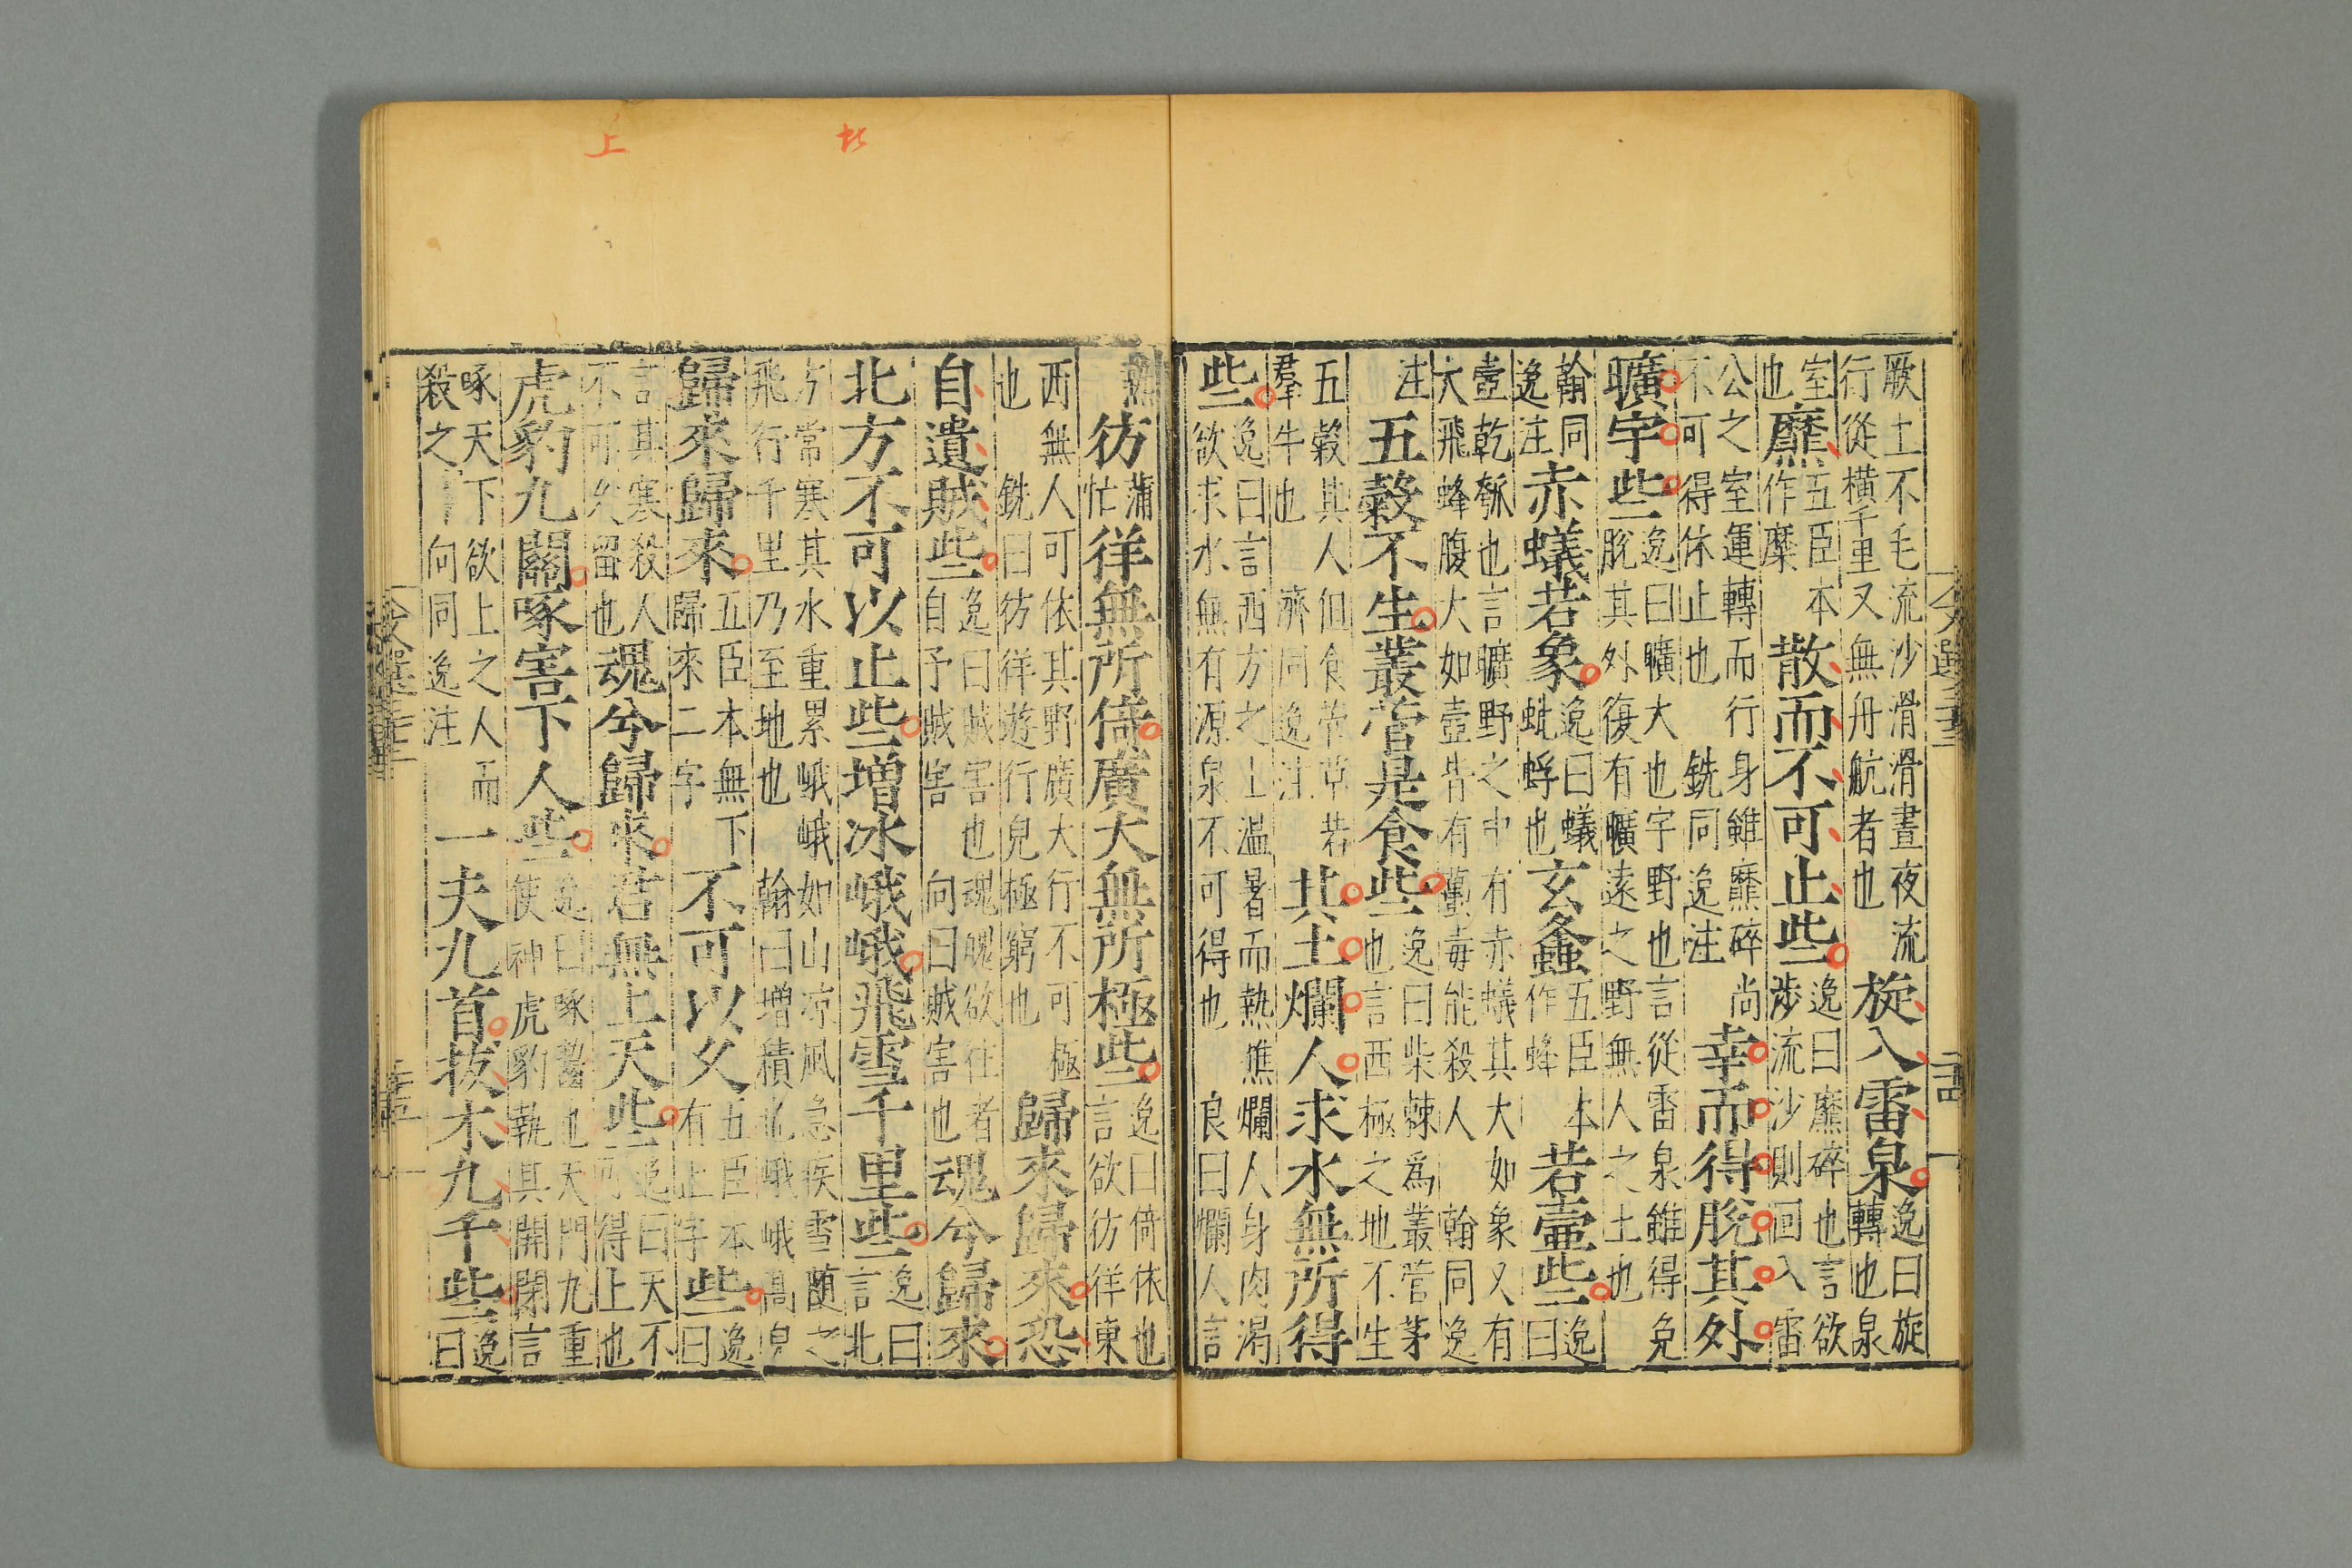 厥土不毛流沙滑滑晝夜流
行從橫千重又無舟航者也
旋入雷泉
逸曰旋
轉也泉
室
也
靡
五臣本
作糜
散而不可止些
逸曰靡碎也言欲
涉流沙則回入雷
公之室運轉而行身雖靡碎尚
不可得休止也 銑同逸注
幸而得脫其外
曠宇些
逸曰曠大也宇野也言從雷泉雖得免
脫其外復有曠遠之野無人之土也
翰同
逸注
赤蟻若象
逸曰蟻
蚍蜉也
玄螽
五臣本
作蜂
若壷些
逸
曰
壷乾瓠也言曠野之中有赤蟻其大如象又有
大飛蜂腹大如壷皆有蠆毒能殺人 翰同逸
注
五榖不生叢菅是食些
逸曰柴棘爲叢菅茅
也言西極之地不生
五穀其人但食菅草若
羣牛也 濟同逸注
其土爛人求水無所得
些
逸曰言西方之土温暑而熱燋爛人身肉渴
欲求水無有源泉不可得也 良曰爛人言
熱
彷
蒲
忙
徉無所倚廣大無所極些
逸曰倚依也
言欲彷徉東
西無人可依其野廣大行不可極
也 銑曰彷徉遊行皃極窮也
歸來歸來恐
自遺賊些
逸曰賊害也魂魄欲往者
自予賊害 向曰賊害也
魂兮歸來
北方不可以止些增冰峨峨飛雪千里些
逸曰
言北
方常寒其水重累峨峨如山凉風急疾雪随之
飛行千里乃至地也 翰曰增積也峨峨高皃
歸來歸來
五臣本無下
歸來二字
不可以久
五臣本
有止字
些
逸
曰
言其寒殺人
不可久留也
魂兮歸來君無上天些
逸曰天不
可得上也
虎豹九關啄害下人些
逸曰啄齧也天門九重
使神虎豹執其開閉言
啄天下欲上之人而
殺之 向同逸注
一夫九首拔木九千些
逸
曰
北
上